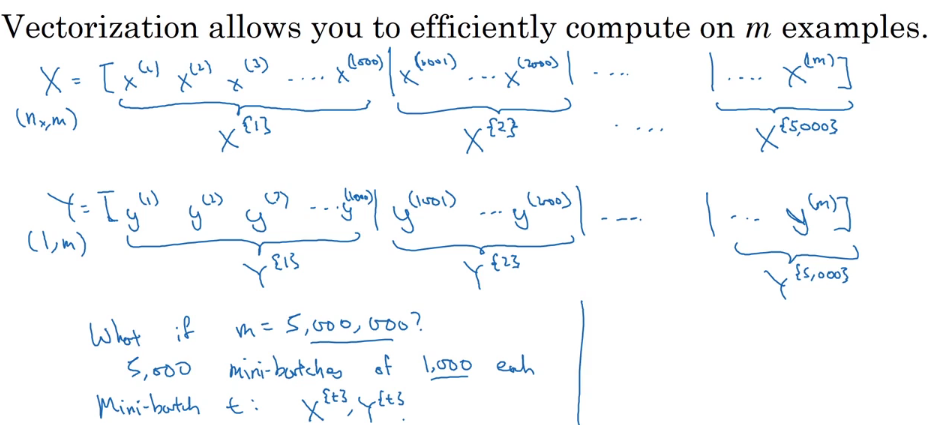 Vectorization allows you to efficiently compute on m examples.
X = [x^(1) x^(2) x^(3) .... x^(1000) | x^(1001) ... x^(2000) | .... | .... x^(m)]
(n_x, m) X^{1} X^{2} .... X^{5,000}
Y = [y^(1) y^(2) y^(3) ... y^(1000) | y^(1001) ... y^(2000) | .... | ... y^(m)]
(1, m) Y^{1} Y^{2} Y^{5,000}
What if m = 5,000,000?
5,000 mini-batches of 1,000 each
Mini-batch t: X^{t}, Y^{t}